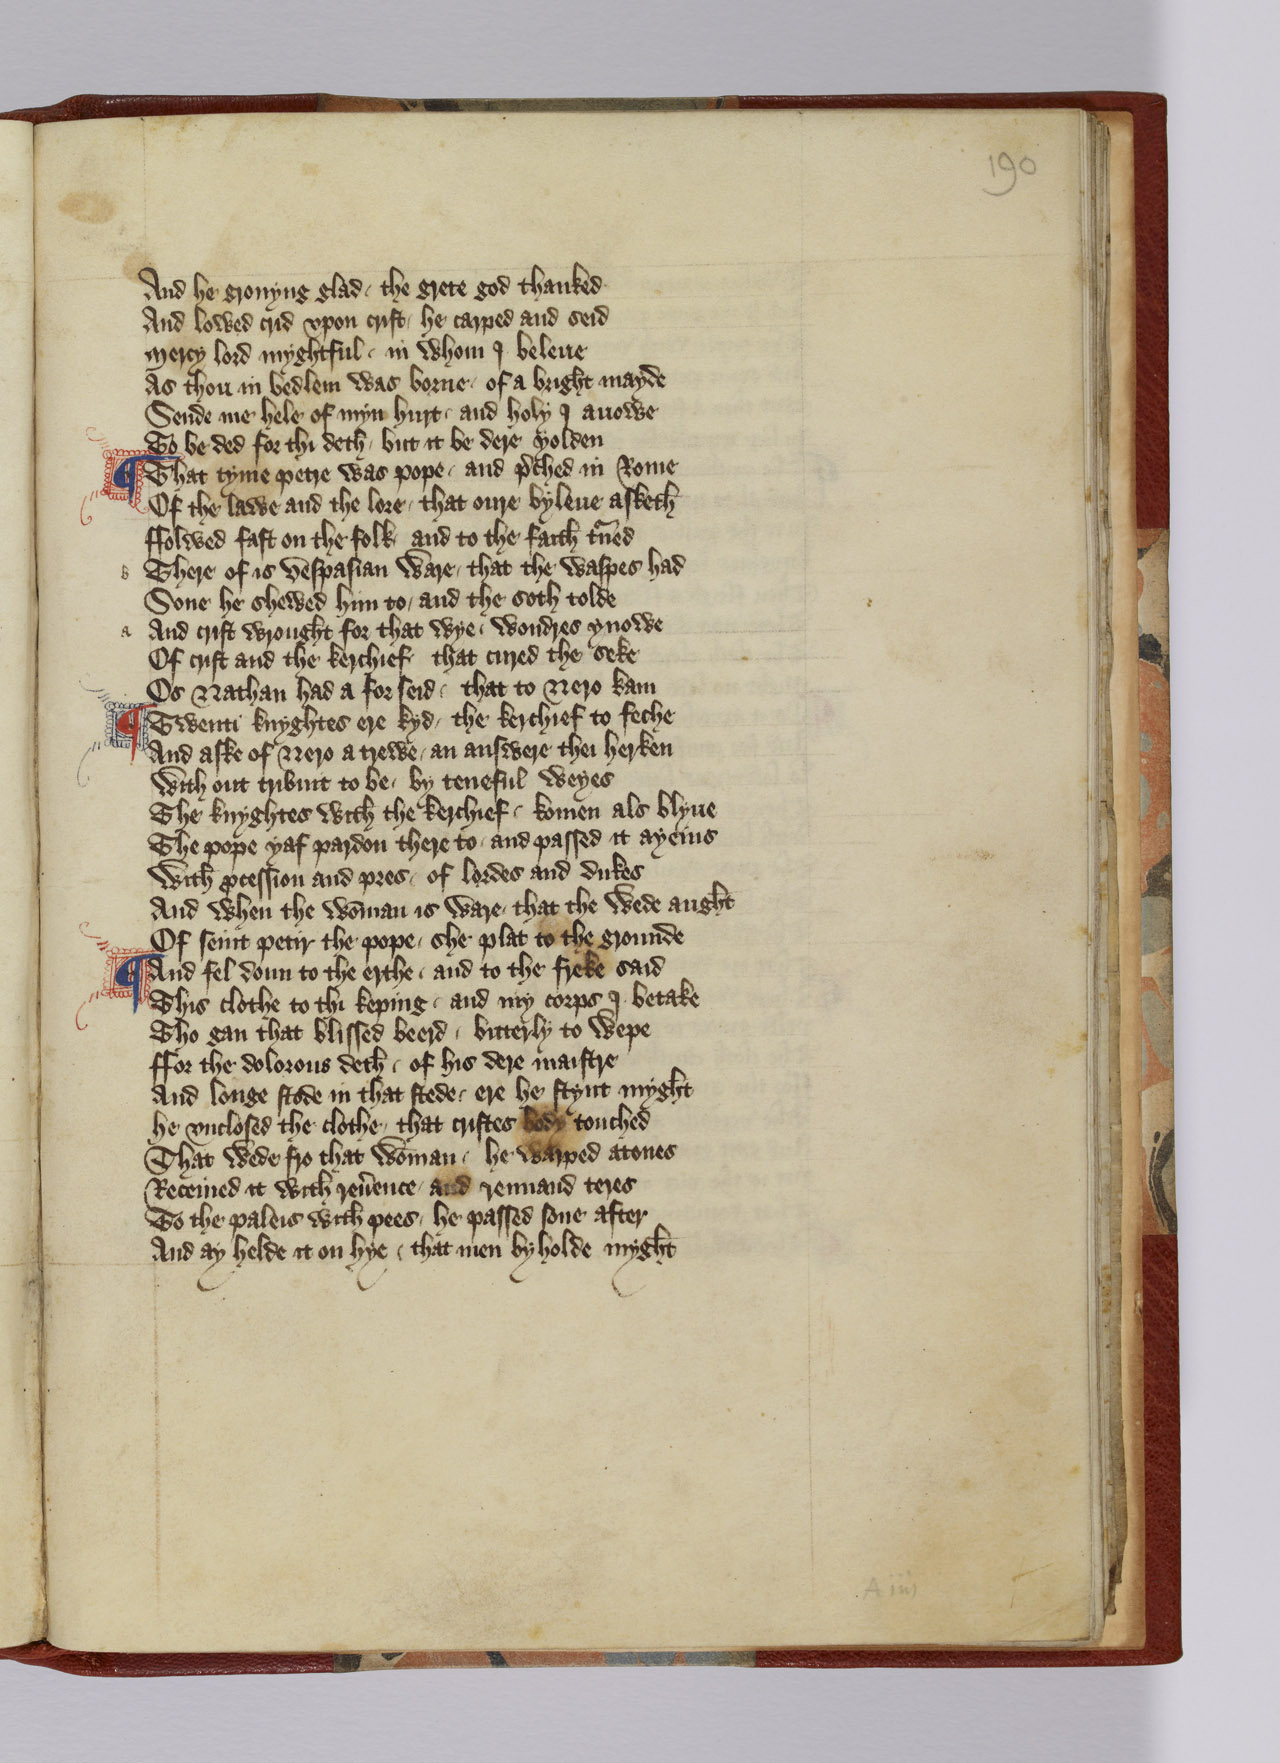 190
And he gronyng glad · the grete god thanked
And lowed crid vpon crist · he carped and seid
Mercy lord myghtful · in whom I beleue
As thou in bedlem was borne · of a bright mayde
Sende me hele of myn hurt · and holy I avowe
To be ded for thi deth · but it be dere yolden
¶ That tyme petre was pope · and p̄ched in Rome
Of the lawe and the lore · that oure byleue asketh
ffolwed fast on the folk · and to the faith t̄ned
b There of is vespasian ware · that the waspes had
Sone he shewed him to · and the soth tolde
a And crist wrought for that wye · wondres ynowe
Of crist and the kerchief · that cured the seke
Os Nathan had a for seid · that to Nero kam
¶ Twenti knyghtes ere kyd · the kerchief to feche
And aske of Nero a trewe · an answere thei herken
With out tribut to be · by teneful weyes
The knyghtes with the kerchief · komen als blyue
The pope yaf pardon there to · and passed it ayeins
With ꝓcession and pres · of lordes and dukes
And when the wōman is ware · that the wede aught
Of seint petir the pope · she plat to the grounde
¶ And fel doun to the erthe · and to the freke said
This clothe to thi keping · and my corps I betake
Tho gan that blissed beerd · bitterly to wepe
ffor the dolorous deth · of his dere maistre
And longe stode in that stede · ere he stynt myght
he vnclosed the clothe · that cristes body touched
That wede fro that wōman · he warped atones
Receiued it with reu̓ence · and rennand teres
To the paleis with pees · he passed sone after
And ay helde it on hye · that men byholde myght
A iiij